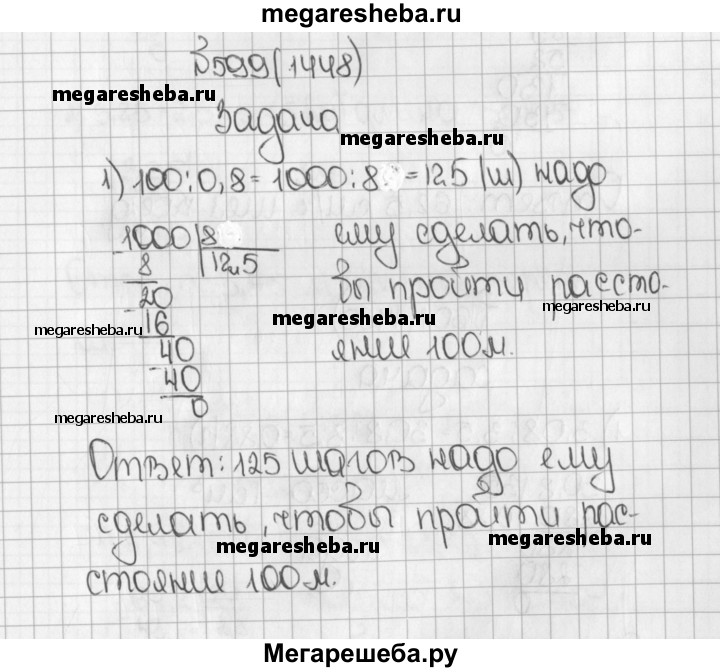 megaresheba.ru
№599(1448)
megaresheba.ru
Задача
megaresheba.ru
1) 100:0,8=1000:8=125 (ш) надо
1000 8 ему сделать, что-
8 125
20 бы пройти рассто-
megaresheba.ru
megaresheba.ru
megaresheba.ru
16
40 яние 100м.
40
0
megaresheba.ru
Ответ: 125 шагов надо ему
сделать, чтобы пройти рас-
megaresheba.ru
megaresheba.ru
стояние 100м.
Мегарешеба.ру